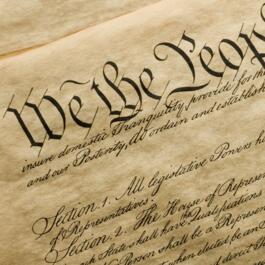 We the Peop
insure domestic Tranquility, provide for the
and our Posterity, do ordain and establish
Section 1. All legislative Powers he
of Representatives.
Section. 2. The House of Represen
each State shall have Qualifications
Person shall be a Represen
when elected be an